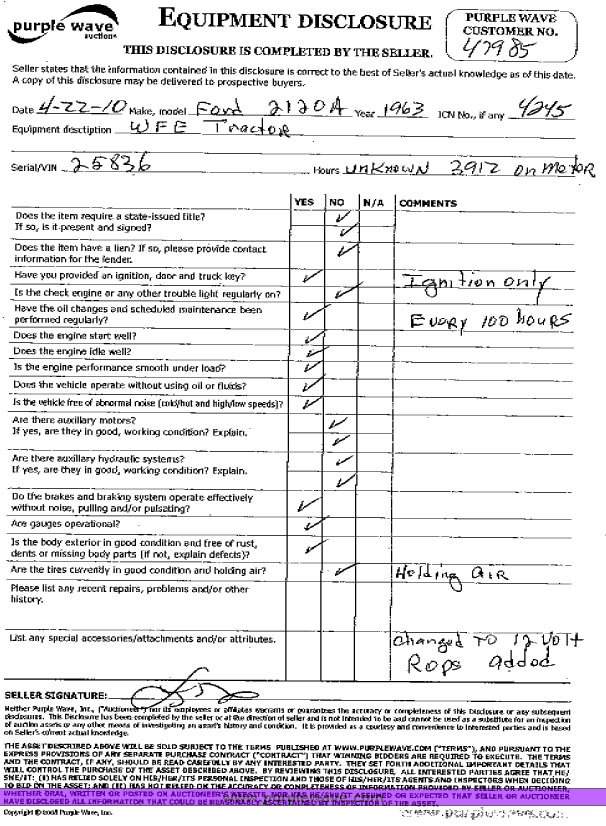 purple wave
auction
EQUIPMENT DISCLOSURE
THIS DISCLOSURE IS COMPLETED BY THE SELLER.
PURPLE WAVE
CUSTOMER NO.
47985
Seller states that the information contained in this disclosure is correct to the best of Seller's actual knowledge as of this date.
A copy of this disclosure may be delivered to prospective buyers.
Date 4-22-10 Make, model Ford 2120A Year 1963 ICN No., if any 4245
Equipment desctiption WFE Tractor
Serial/VIN 25836 Hours unknown 3912 on meter
YES NO N/A COMMENTS
Does the item require a state-issued title?
If so, is it present and signed?
Does the item have a lien? If so, please provide contact
information for the lender.
Have you provided an ignition, door and truck key? Ignition only
Is the check engine or any other trouble light regularly on?
Have the oil changes and scheduled maintenance been
performed regularly? Every 100 hours
Does the engine start well?
Does the engine idle well?
Is the engine performance smooth under load?
Does the vehicle operate without using oil or fluids?
Is the vehicle free of abnormal noise (cold/hot and high/low speeds)?
Are there auxiliary motors?
If yes, are they in good, working condition? Explain.
Are there auxiliary hydraulic systems?
If yes, are they in good, working condition? Explain.
Do the brakes and braking system operate effectively
without noise, pulling and/or pulsating?
Are gauges operational?
Is the body exterior in good condition and free of rust,
dents or missing body parts (if not, explain defects)?
Are the tires currently in good condition and holding air? Holding Air
Please list any recent repairs, problems and/or other
history.
List any special accessories/attachments and/or attributes. changed TO 12 Volt
Rops added
SELLER SIGNATURE:
Neither Purple Wave, Inc., ("Auctioneer") nor its employees or affiliates warrants or guarantees the accuracy or completeness of this Disclosure or any subsequent
disclosures. This Disclosure has been completed by the seller or at the direction of seller and is not intended to be and cannot be used as a substitute for an inspection
of auction assets or any other means of investigating an asset's history and condition. It is provided as a courtesy and convenience to interested parties and is based
on Seller's current actual knowledge.
THE ASSET DESCRIBED ABOVE WILL BE SOLD SUBJECT TO THE TERMS PUBLISHED AT WWW.PURPLEWAVE.COM ("TERMS"), AND PURSUANT TO THE
EXPRESS PROVISIONS OF ANY SEPARATE PURCHASE CONTRACT ("CONTRACT") THAT WINNING BIDDERS ARE REQUIRED TO EXECUTE. THE TERMS
AND THE CONTRACT, IF ANY, SHOULD BE READ CAREFULLY BY ANY INTERESTED PARTY. THEY SET FORTH ADDITIONAL IMPORTANT DETAILS THAT
WILL CONTROL THE PURCHASE OF THE ASSET DESCRIBED ABOVE. BY REVIEWING THIS DISCLOSURE, ALL INTERESTED PARTIES AGREE THAT HE/
SHE/IT: (I) HAS RELIED SOLELY ON HIS/HER/ITS PERSONAL INSPECTION AND THOSE OF HIS/HER/ITS AGENTS AND INSPECTORS WHEN DECIDING
TO BID ON THE ASSET; AND (II) HAS NOT RELIED ON THE ACCURACY OR COMPLETENESS OF INFORMATION PROVIDED BY SELLER OR AUCTIONEER,
WHETHER ORAL, WRITTEN OR POSTED ON AUCTIONEER'S WEBSITE, NOR HAS HE/SHE/IT ASSUMED OR EXPECTED THAT SELLER OR AUCTIONEER
HAVE DISCLOSED ALL INFORMATION THAT COULD BE REASONABLY ASCERTAINED BY INSPECTION OF THE ASSET.
Copyright © 2008 Purple Wave, Inc. www.purplewave.com